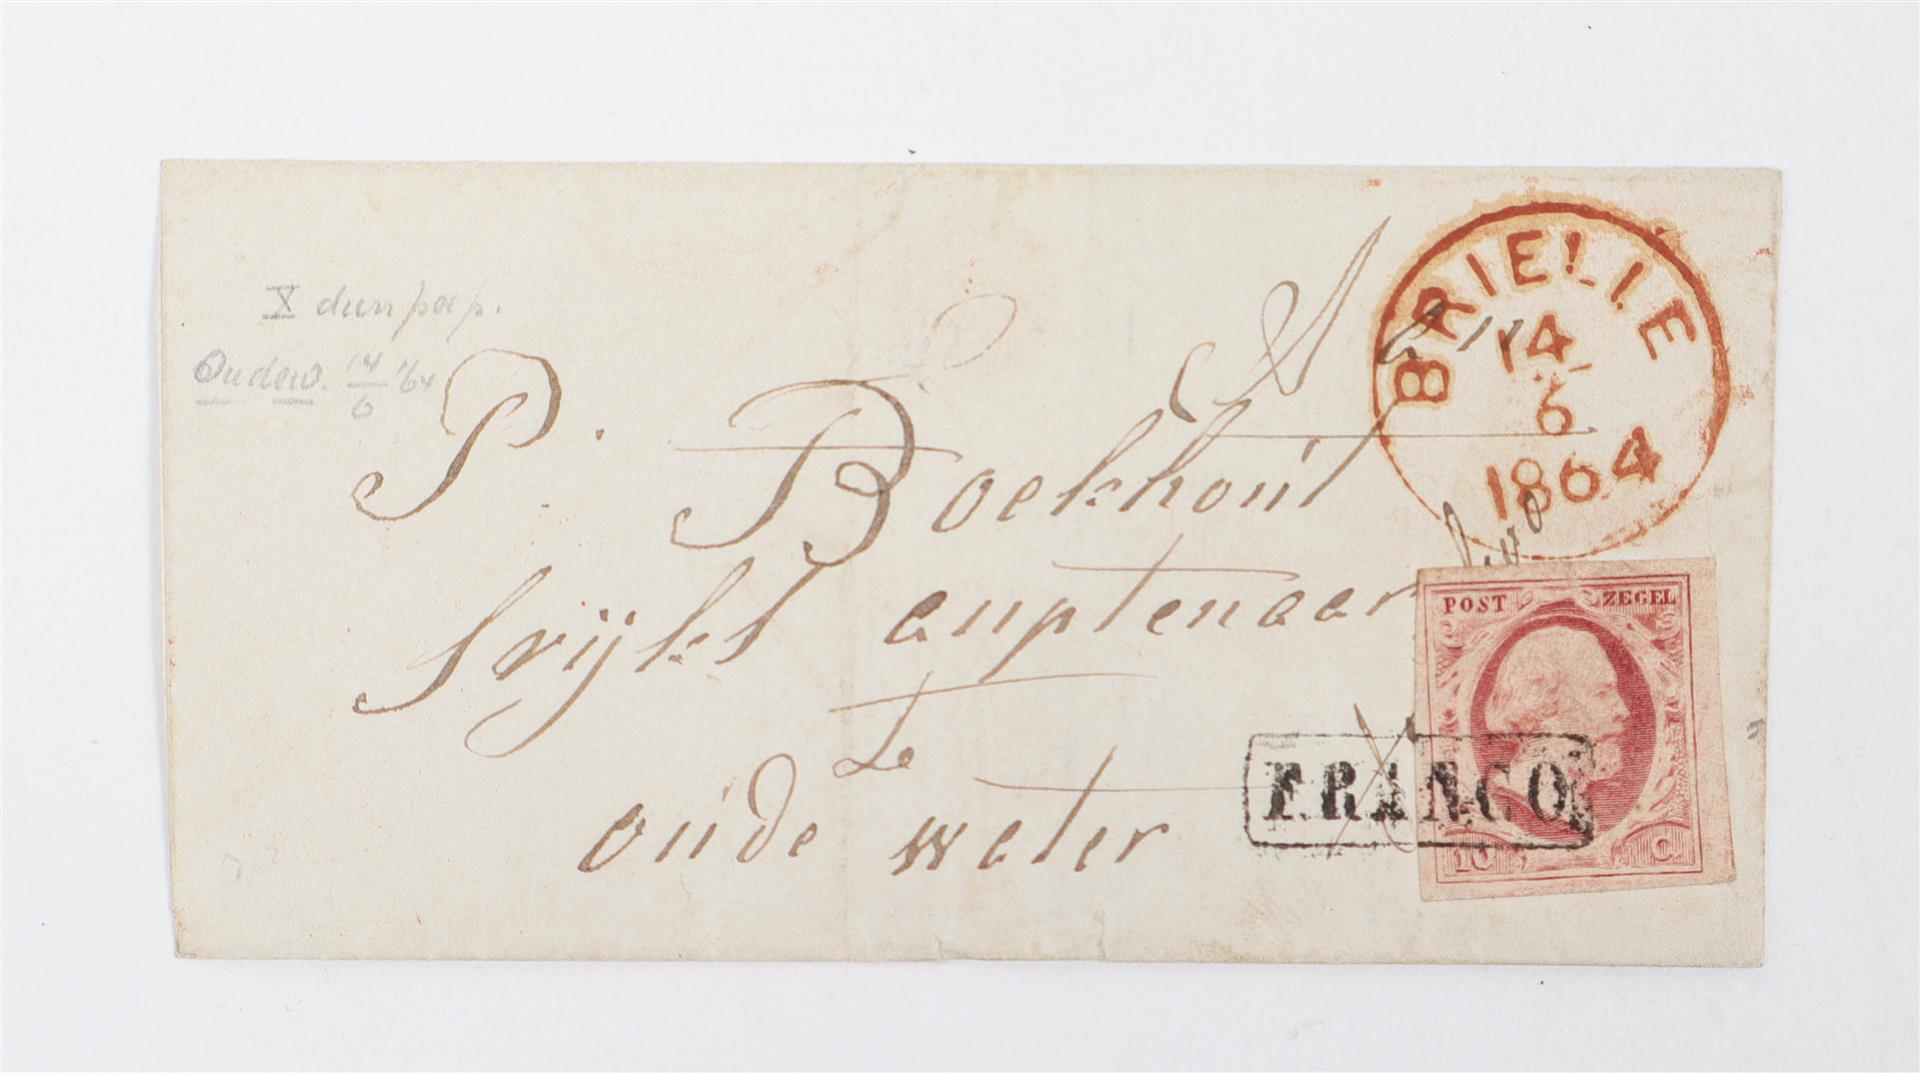 X dun pap.
Oudew. 14/6 '64
BRIELLE
14
6
1864
P. Boekhout
srijks amptenaar
Te
oude water
POST ZEGEL
10 C.
FRANCO